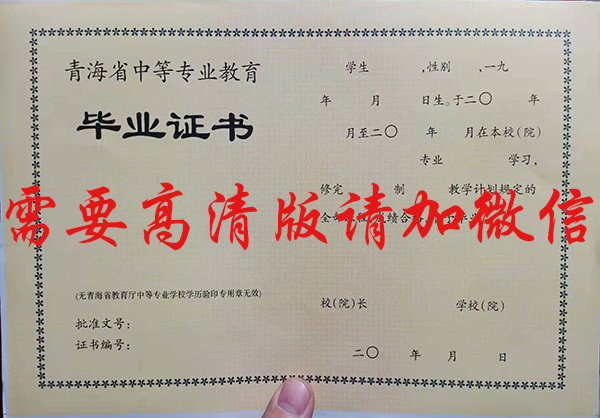 青海省中等专业教育
毕业证书
(无青海省教育厅中等专业学校学历验印专用章无效)
批准文号:
证书编号:
学生 ,性别 ,一九
年 月 日生。于二〇 年
月至二〇 年 月在本校(院)
专业 学习,
修完 制 教学计划规定的
全 绩合
校(院)长 学校(院)
二〇 年 月 日
需要高清版请加微信